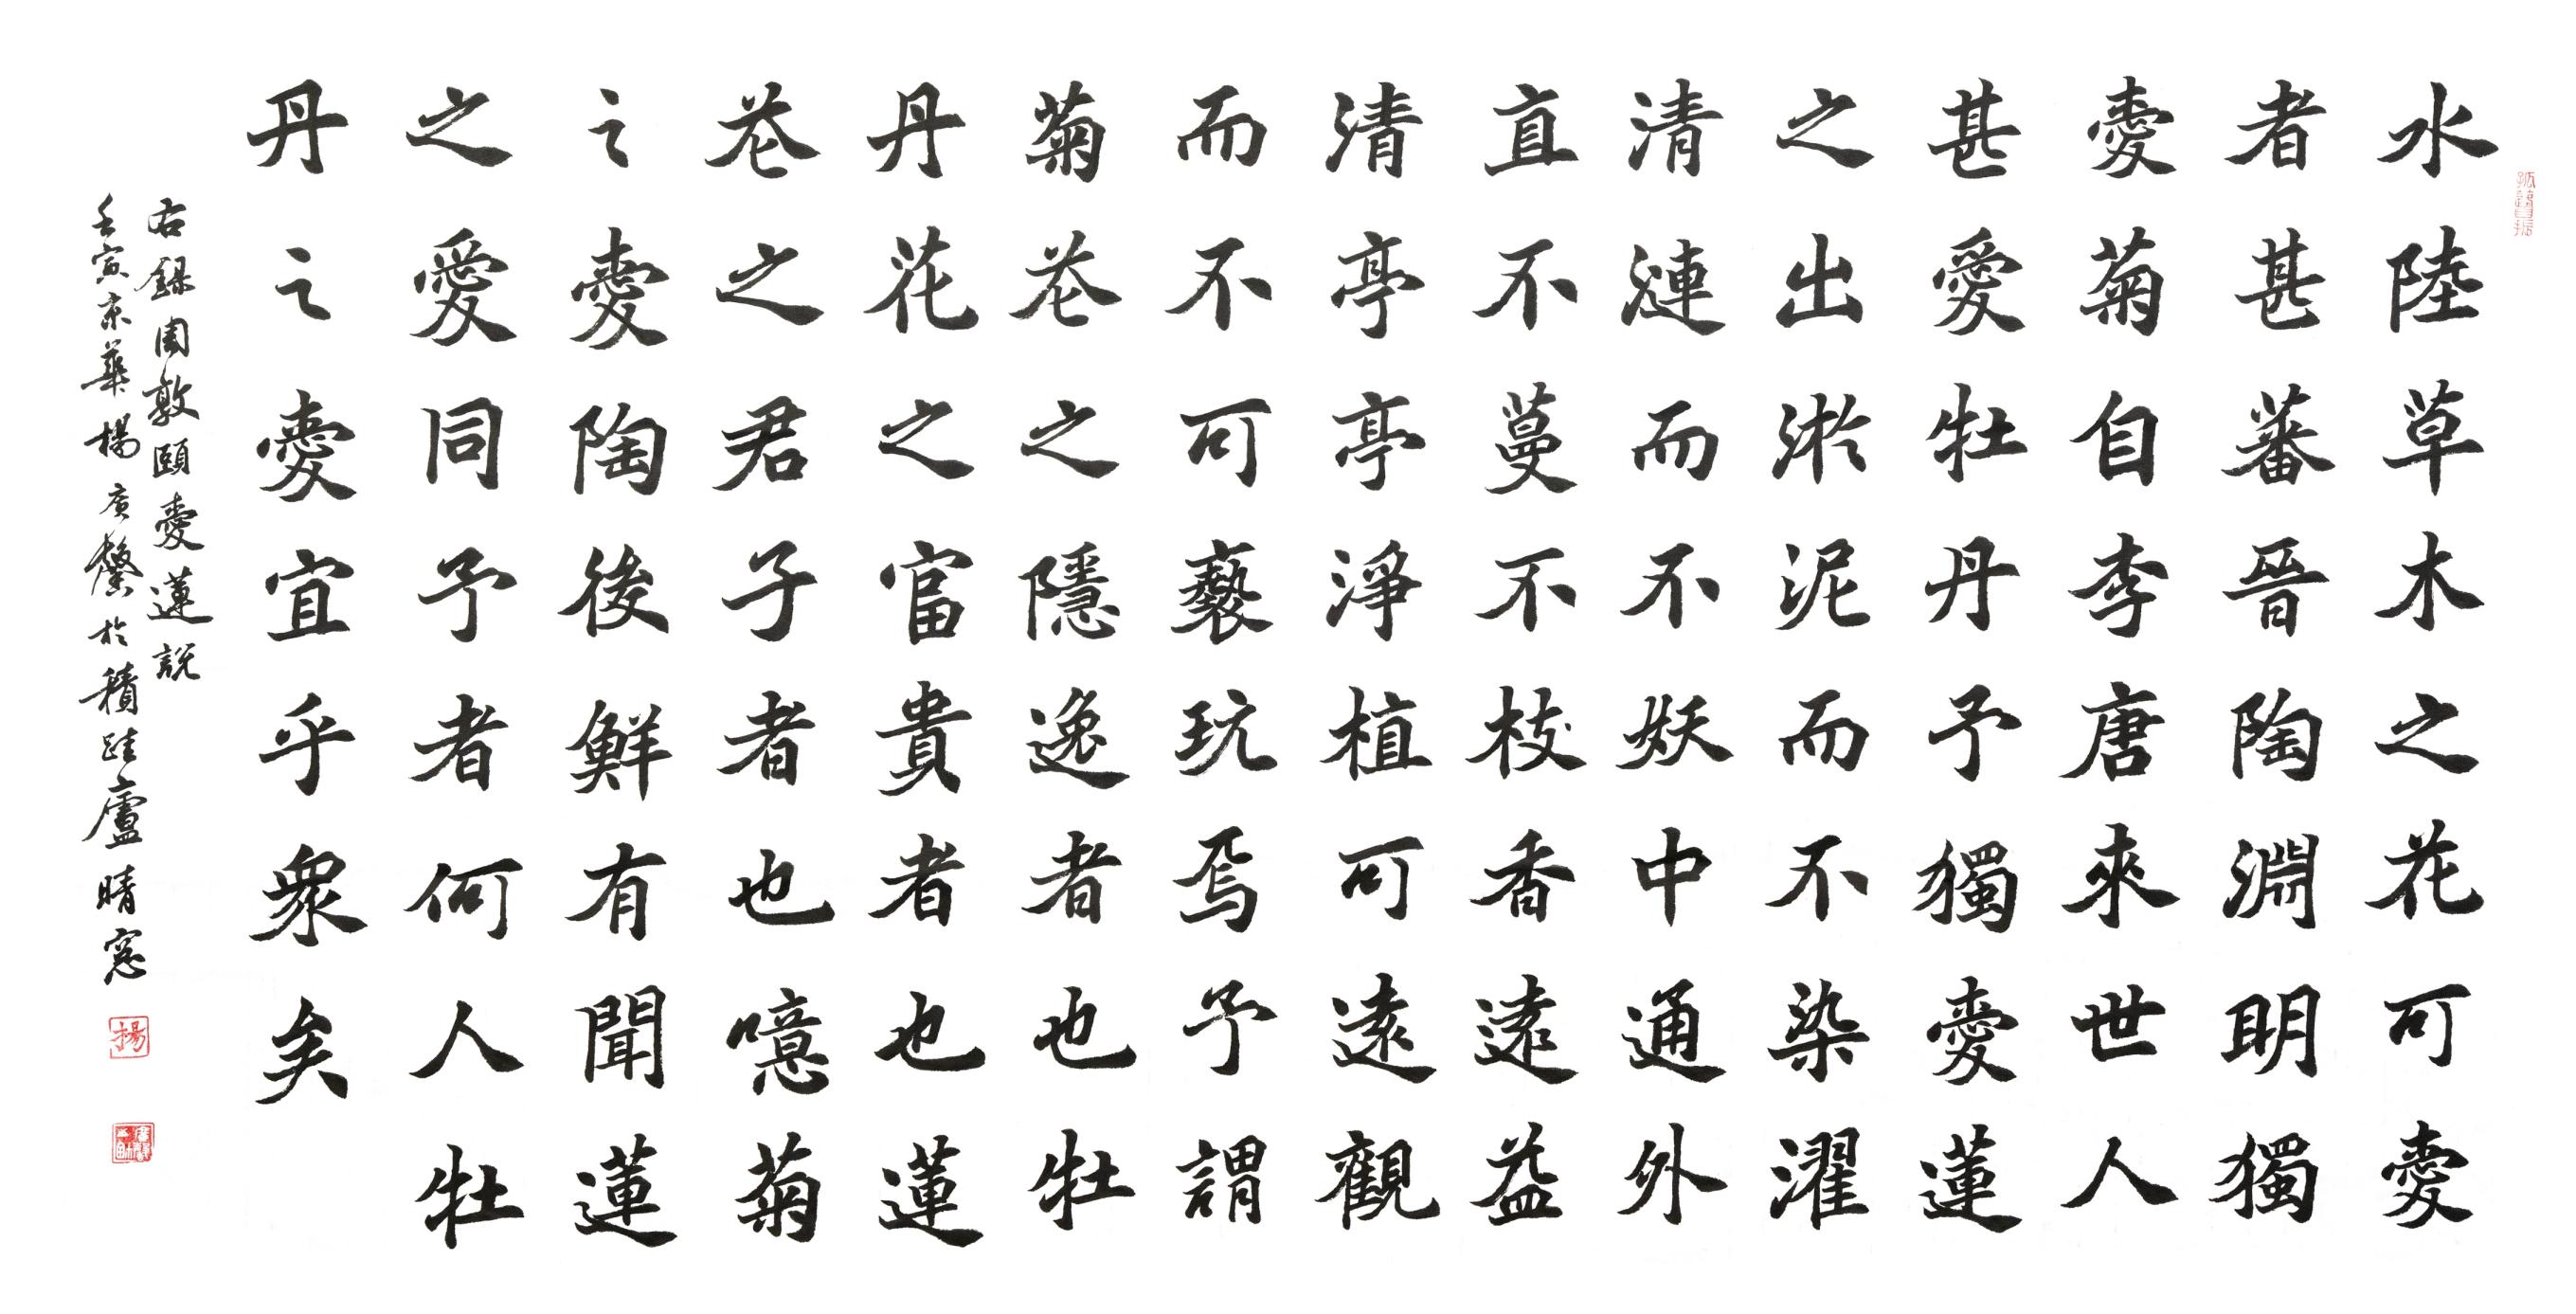 水陸草木之花可愛
者甚蕃晉陶淵明獨
愛菊自李唐來世人
甚愛牡丹予獨愛蓮
之出淤泥而不染濯
清漣而不妖中通外
直不蔓不枝香遠益
清亭亭淨植可遠觀
而不可褻玩焉予謂
菊花之隱逸者也牡
丹花之富貴者也蓮
花之君子者也噫菊
之愛陶後鮮有聞蓮
之愛同予者何人牡
丹之愛宜乎眾矣
右錄周敦頤愛蓮說
壬寅京華楊廣馨於積跬廬晴窓
楊